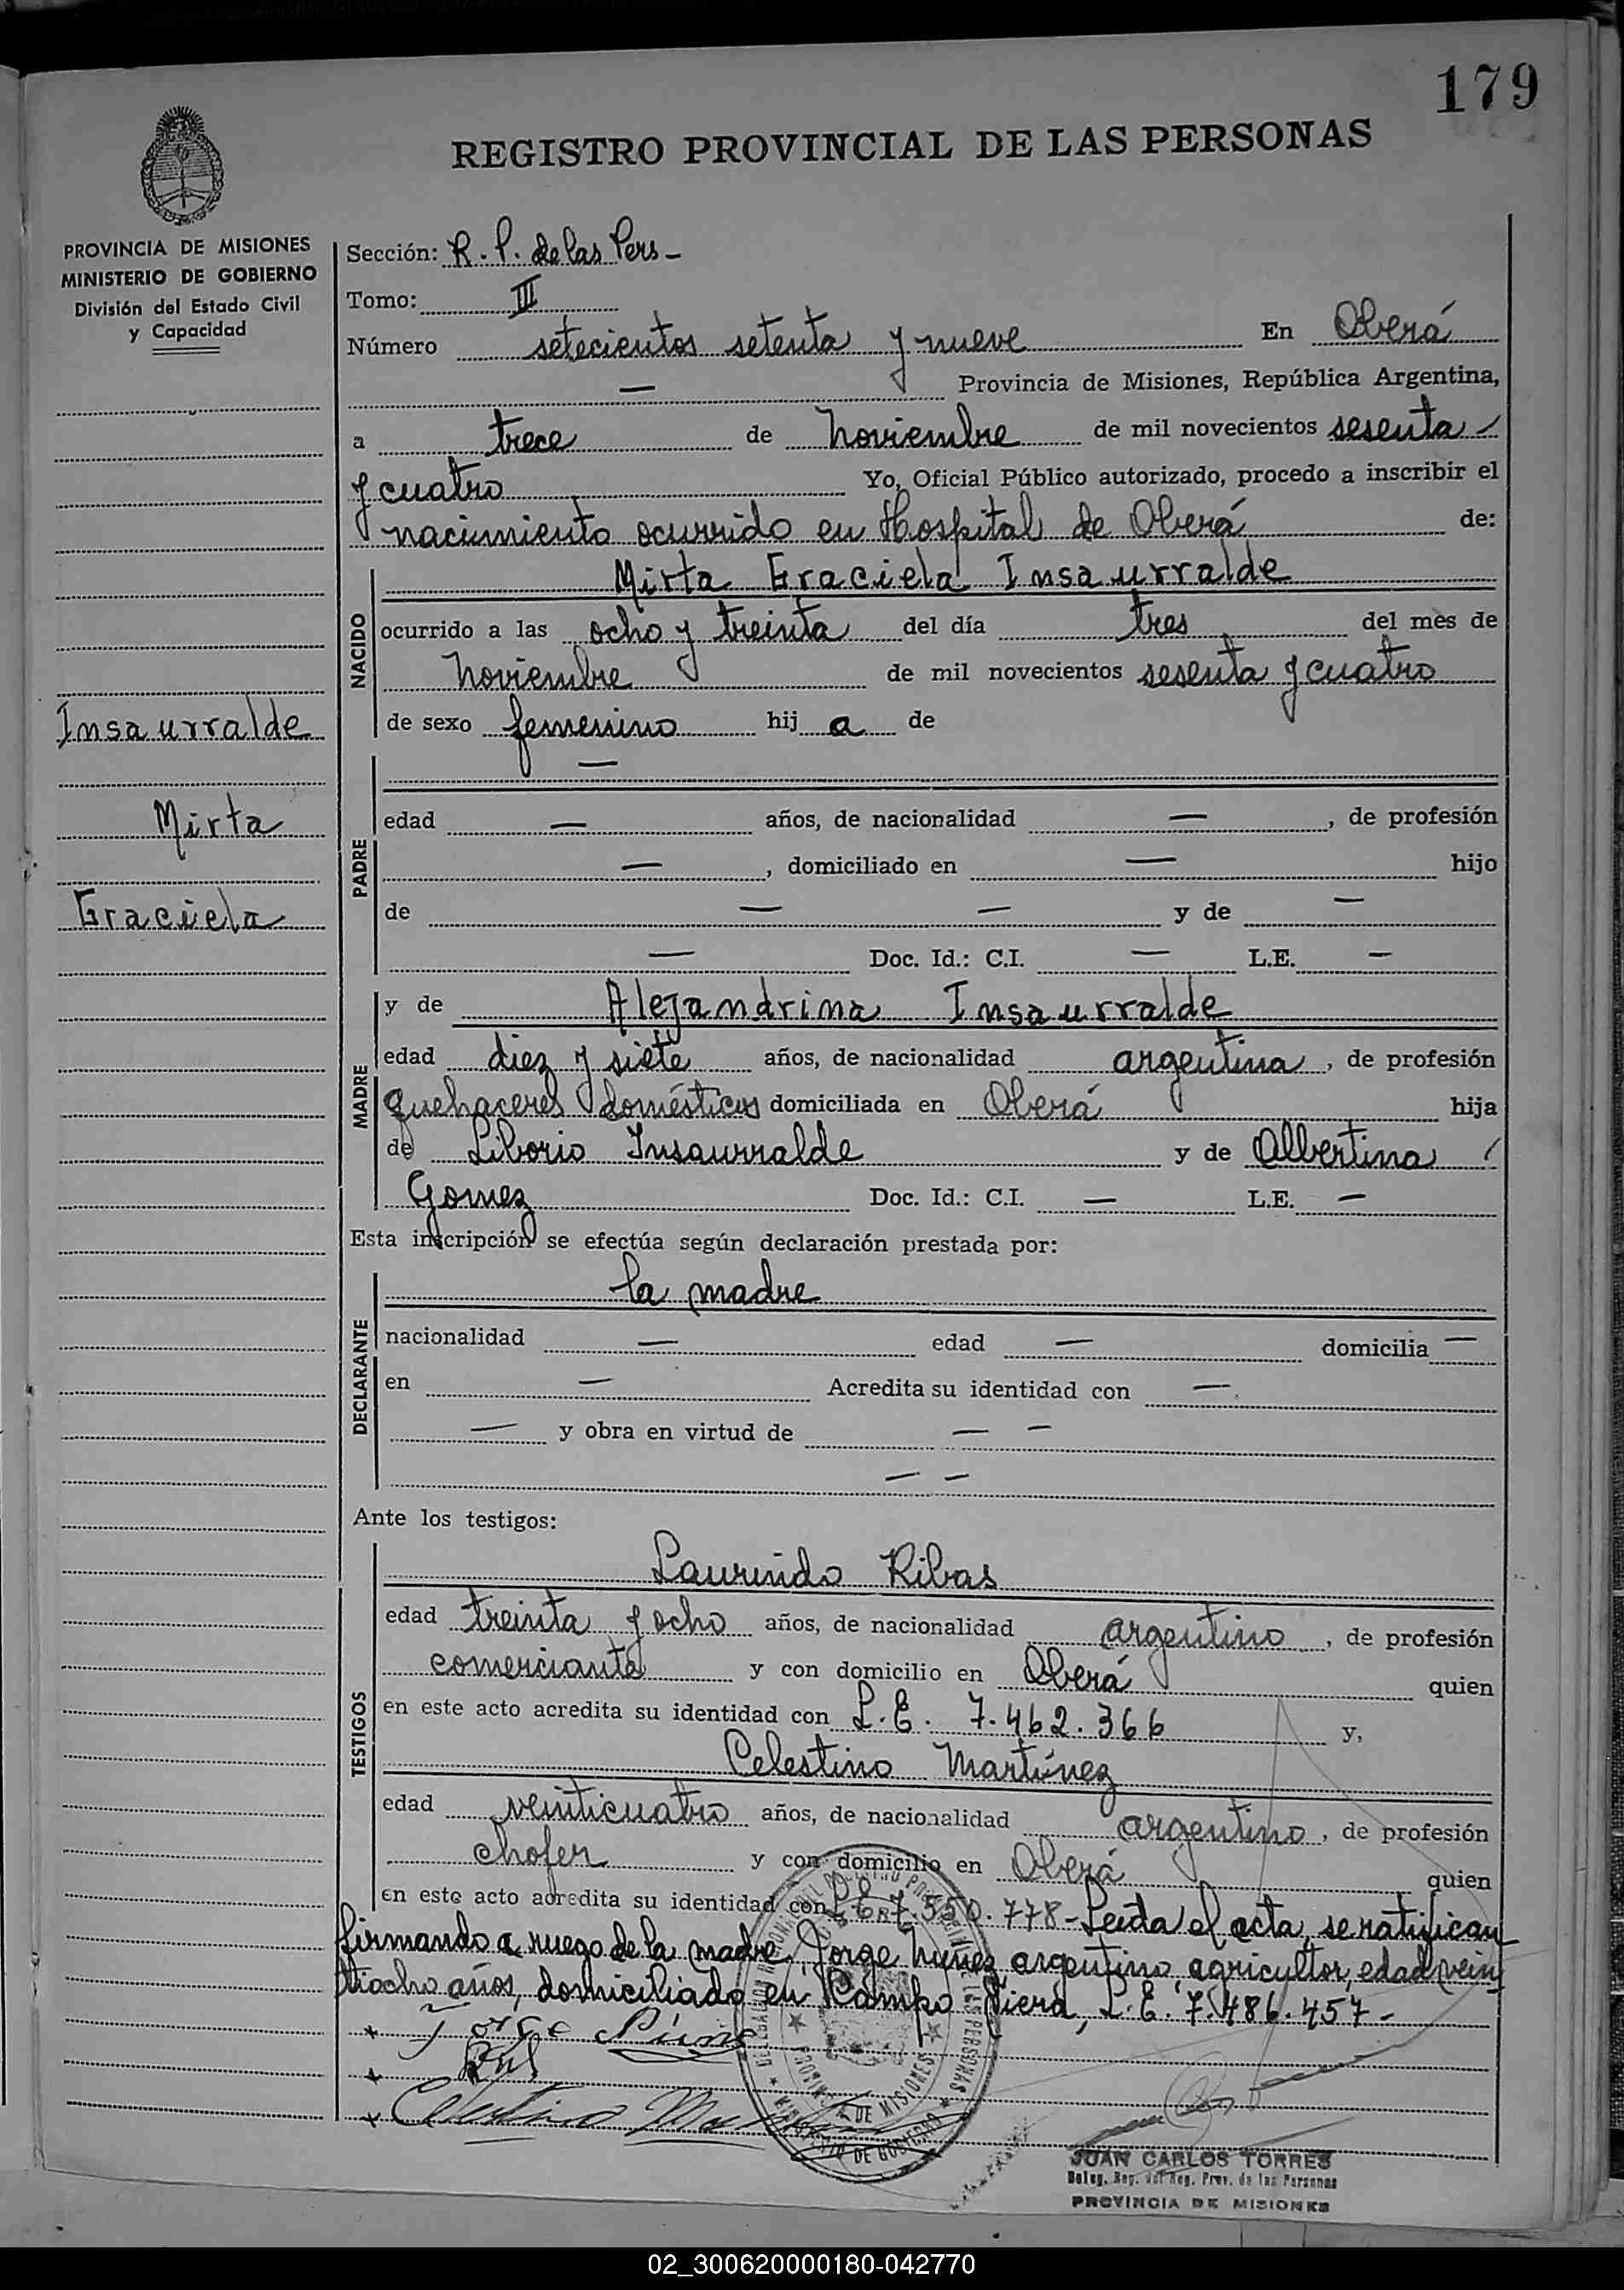 179
REGISTRO PROVINCIAL DE LAS PERSONAS
PROVINCIA DE MISIONES
MINISTERIO DE GOBIERNO
División del Estado Civil
y Capacidad
Insaurralde
Mirta
Graciela
Sección: R. P. de las Pers -
Tomo: III
Número setecientos setenta y nueve En Oberá
— Provincia de Misiones, República Argentina,
a trece de Noviembre de mil novecientos sesenta
y cuatro Yo, Oficial Público autorizado, procedo a inscribir el
nacimiento ocurrido en Hospital de Oberá de:
NACIDO
Mirta Graciela Insaurralde
ocurrido a las ocho y treinta del día tres del mes de
Noviembre de mil novecientos sesenta y cuatro
de sexo femenino hij a de
PADRE
—
edad — años, de nacionalidad — , de profesión
— , domiciliado en — hijo
de — — y de —
— Doc. Id.: C.I. — L.E. —
MADRE
y de Alejandrina Insaurralde
edad diez y siete años, de nacionalidad argentina , de profesión
quehaceres domésticos domiciliada en Oberá hija
de Liborio Insaurralde y de Albertina
Gomez Doc. Id.: C.I. — L.E. —
Esta inscripción se efectúa según declaración prestada por:
DECLARANTE
la madre
nacionalidad — edad — domicilia —
en — Acredita su identidad con —
— y obra en virtud de — —
— —
Ante los testigos:
TESTIGOS
Laurindo Ribas
edad treinta y ocho años, de nacionalidad argentino , de profesión
comerciante y con domicilio en Oberá quien
en este acto acredita su identidad con L.E. 7.462.366 y,
Celestino Martínez
edad veinticuatro años, de nacionalidad argentino , de profesión
chofer y con domicilio en Oberá quien
en este acto acredita su identidad con 7.550.778 - Leída el acta, se ratifican
firmando a ruego de la madre, Jorge Nuñez argentino, agricultor, edad vein
tiocho años, domiciliado en Campo Viera, L.E. 7.486.457 -
Jorge
Celestino
PROVINCIA DE MISIONES
MINISTERIO DE GOBIERNO
JUAN CARLOS TORRES
Deleg. Reg. del Reg. Prov. de las Personas
PROVINCIA DE MISIONES
02_300620000180-042770